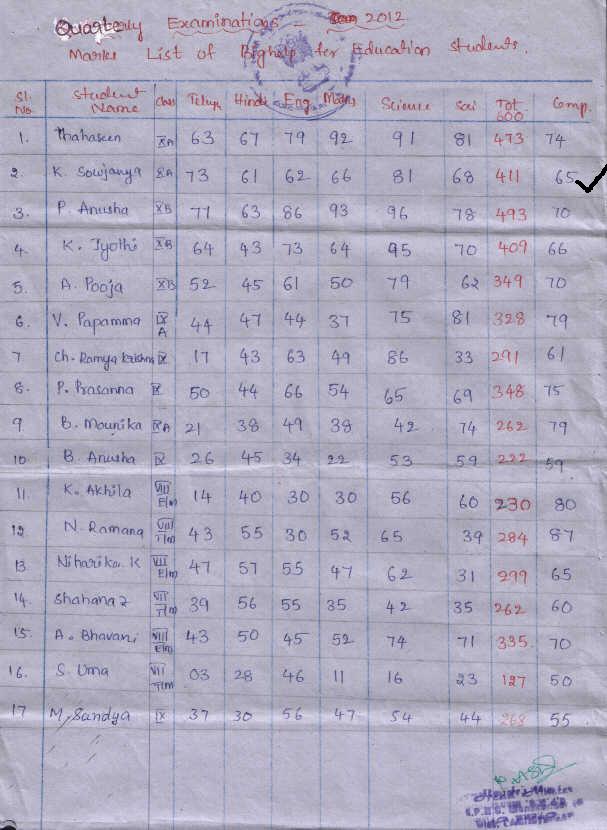 Quarterly Examinations - 2012
Marks List of Bighelp for Education Students.
Sl. No. Student Name Class Telugu Hindi Eng Maths Science Soci Tot 600 Comp.
1. Thahaseen XA 63 67 79 92 91 81 473 74
2. K. Sowjanya XA 73 61 62 66 81 68 411 65
3. P. Anusha XB 71 63 86 93 96 78 493 70
4. K. Jyothi XB 64 43 73 64 95 70 409 66
5. A. Pooja XB 52 45 61 50 79 62 349 70
6. V. Papamma IX A 44 47 44 37 75 81 328 79
7 Ch. Ramya Krishna IX 17 43 63 49 86 33 291 61
8. P. Prasanna IX 50 44 66 54 65 69 348 75
9 B. Mounika IXA 21 38 49 38 42 74 262 79
10 B. Anusha IX 26 45 34 22 53 59 222 59
11. K. Akhila VIII E/m 14 40 30 30 56 60 230 80
12 N. Ramana VIII T/m 43 55 30 52 65 39 284 87
13 Niharika. K VII E/m 47 57 55 47 62 31 299 65
14. Shahana z VII T/m 39 56 55 35 42 35 262 60
15. A. Bhavani VIII E/m 43 50 45 52 74 71 335 70
16. S. Uma VII T/m 03 28 46 11 16 23 127 50
17 M. Sandya IX 37 30 56 47 54 44 268 55